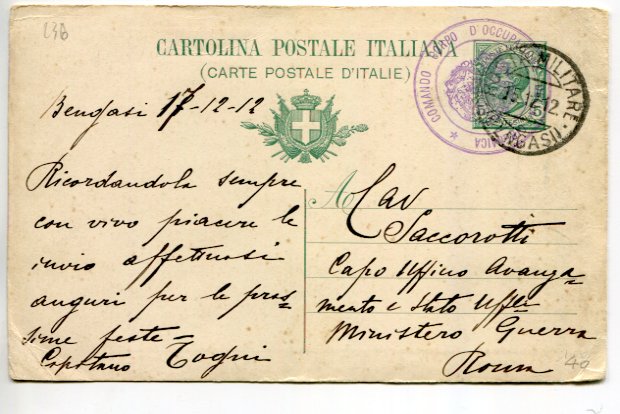 236
CARTOLINA POSTALE ITALIANA
(CARTE POSTALE D'ITALIE)
COMANDO CORPO D'OCCUP
MILITARE
BENGASI
Bengasi 17-12-12
Ricordandola sempre
con vivo piacere le
invio affettuosi
auguri per le pros=
sime feste=
Capitano Togni
A Cav
Saccorotti
Capo Ufficio Avanza=
mento e Stato Uffli
Ministero Guerra
Roma
40